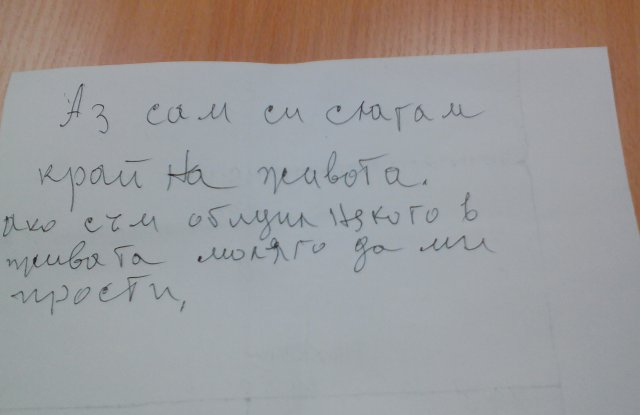 Аз сам си слагам
край на живота.
ако съм обидил някого в
живата моляго да ми
прости,